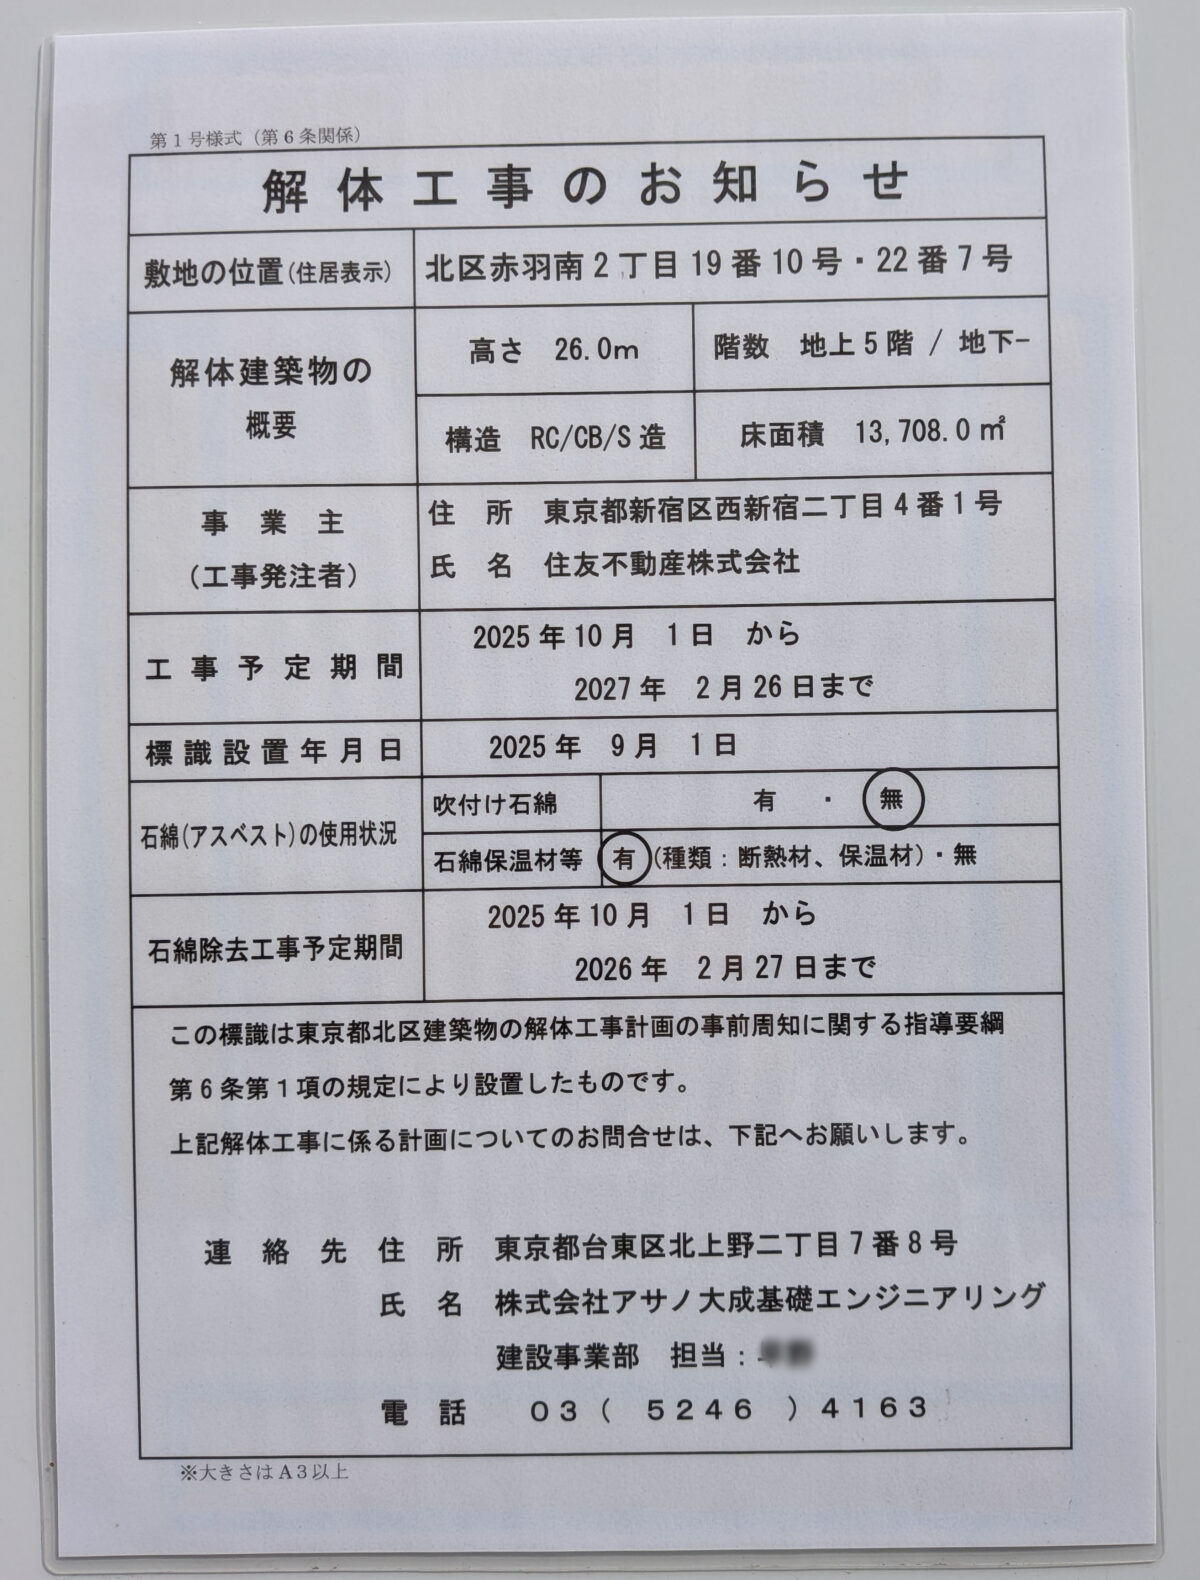 第１号様式（第６条関係）
解体工事のお知らせ
敷地の位置(住居表示) 北区赤羽南２丁目19番10号・22番７号
解体建築物の
概要
高さ 26.0ｍ 階数 地上５階 / 地下-
構造 RC/CB/S造 床面積 13,708.0㎡
事業主
（工事発注者）
住所 東京都新宿区西新宿二丁目４番１号
氏名 住友不動産株式会社
工事予定期間
2025年10月 1日 から
2027年 2月26日まで
標識設置年月日 2025年 9月 1日
石綿(アスベスト)の使用状況
吹付け石綿 有 ・ 無
石綿保温材等 有 (種類：断熱材、保温材)・無
石綿除去工事予定期間
2025年10月 1日 から
2026年 2月27日まで
この標識は東京都北区建築物の解体工事計画の事前周知に関する指導要綱
第６条第１項の規定により設置したものです。
上記解体工事に係る計画についてのお問合せは、下記へお願いします。
連絡先 住所 東京都台東区北上野二丁目７番８号
氏名 株式会社アサノ大成基礎エンジニアリング
建設事業部 担当：
電話 ０３（ ５２４６ ）４１６３
※大きさはＡ３以上